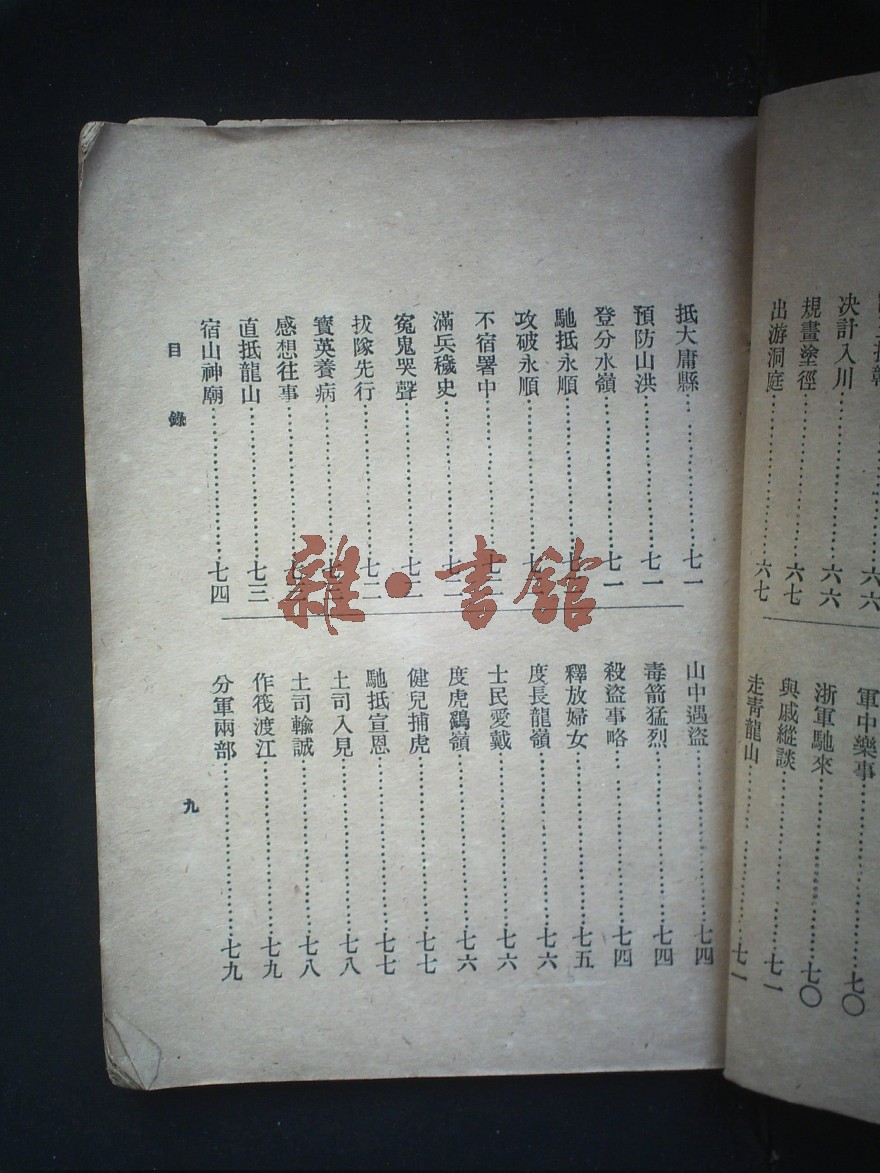 决計入川……六六
規畫塗徑……六七
出游洞庭……六七
軍中樂事……七〇
浙軍馳來……七〇
與戚縱談……七一
走靑龍山……七一
抵大庸縣……七一
預防山洪……七一
登分水嶺……七一
馳抵永順
攻破永順
不宿署中
滿兵穢史
冤鬼哭聲
拔隊先行……七二
寶英養病
感想往事
直抵龍山……七三
宿山神廟……七四
山中遇盜……七四
毒箭猛烈……七四
殺盜事略……七四
釋放婦女……七五
度長龍嶺……七六
士民愛戴……七六
度虎鷄嶺……七六
健兒捕虎……七七
馳抵宣恩……七七
土司入見……七八
土司輸誠……七八
作筏渡江……七九
分軍兩部……七九
目錄
九
雜·書館